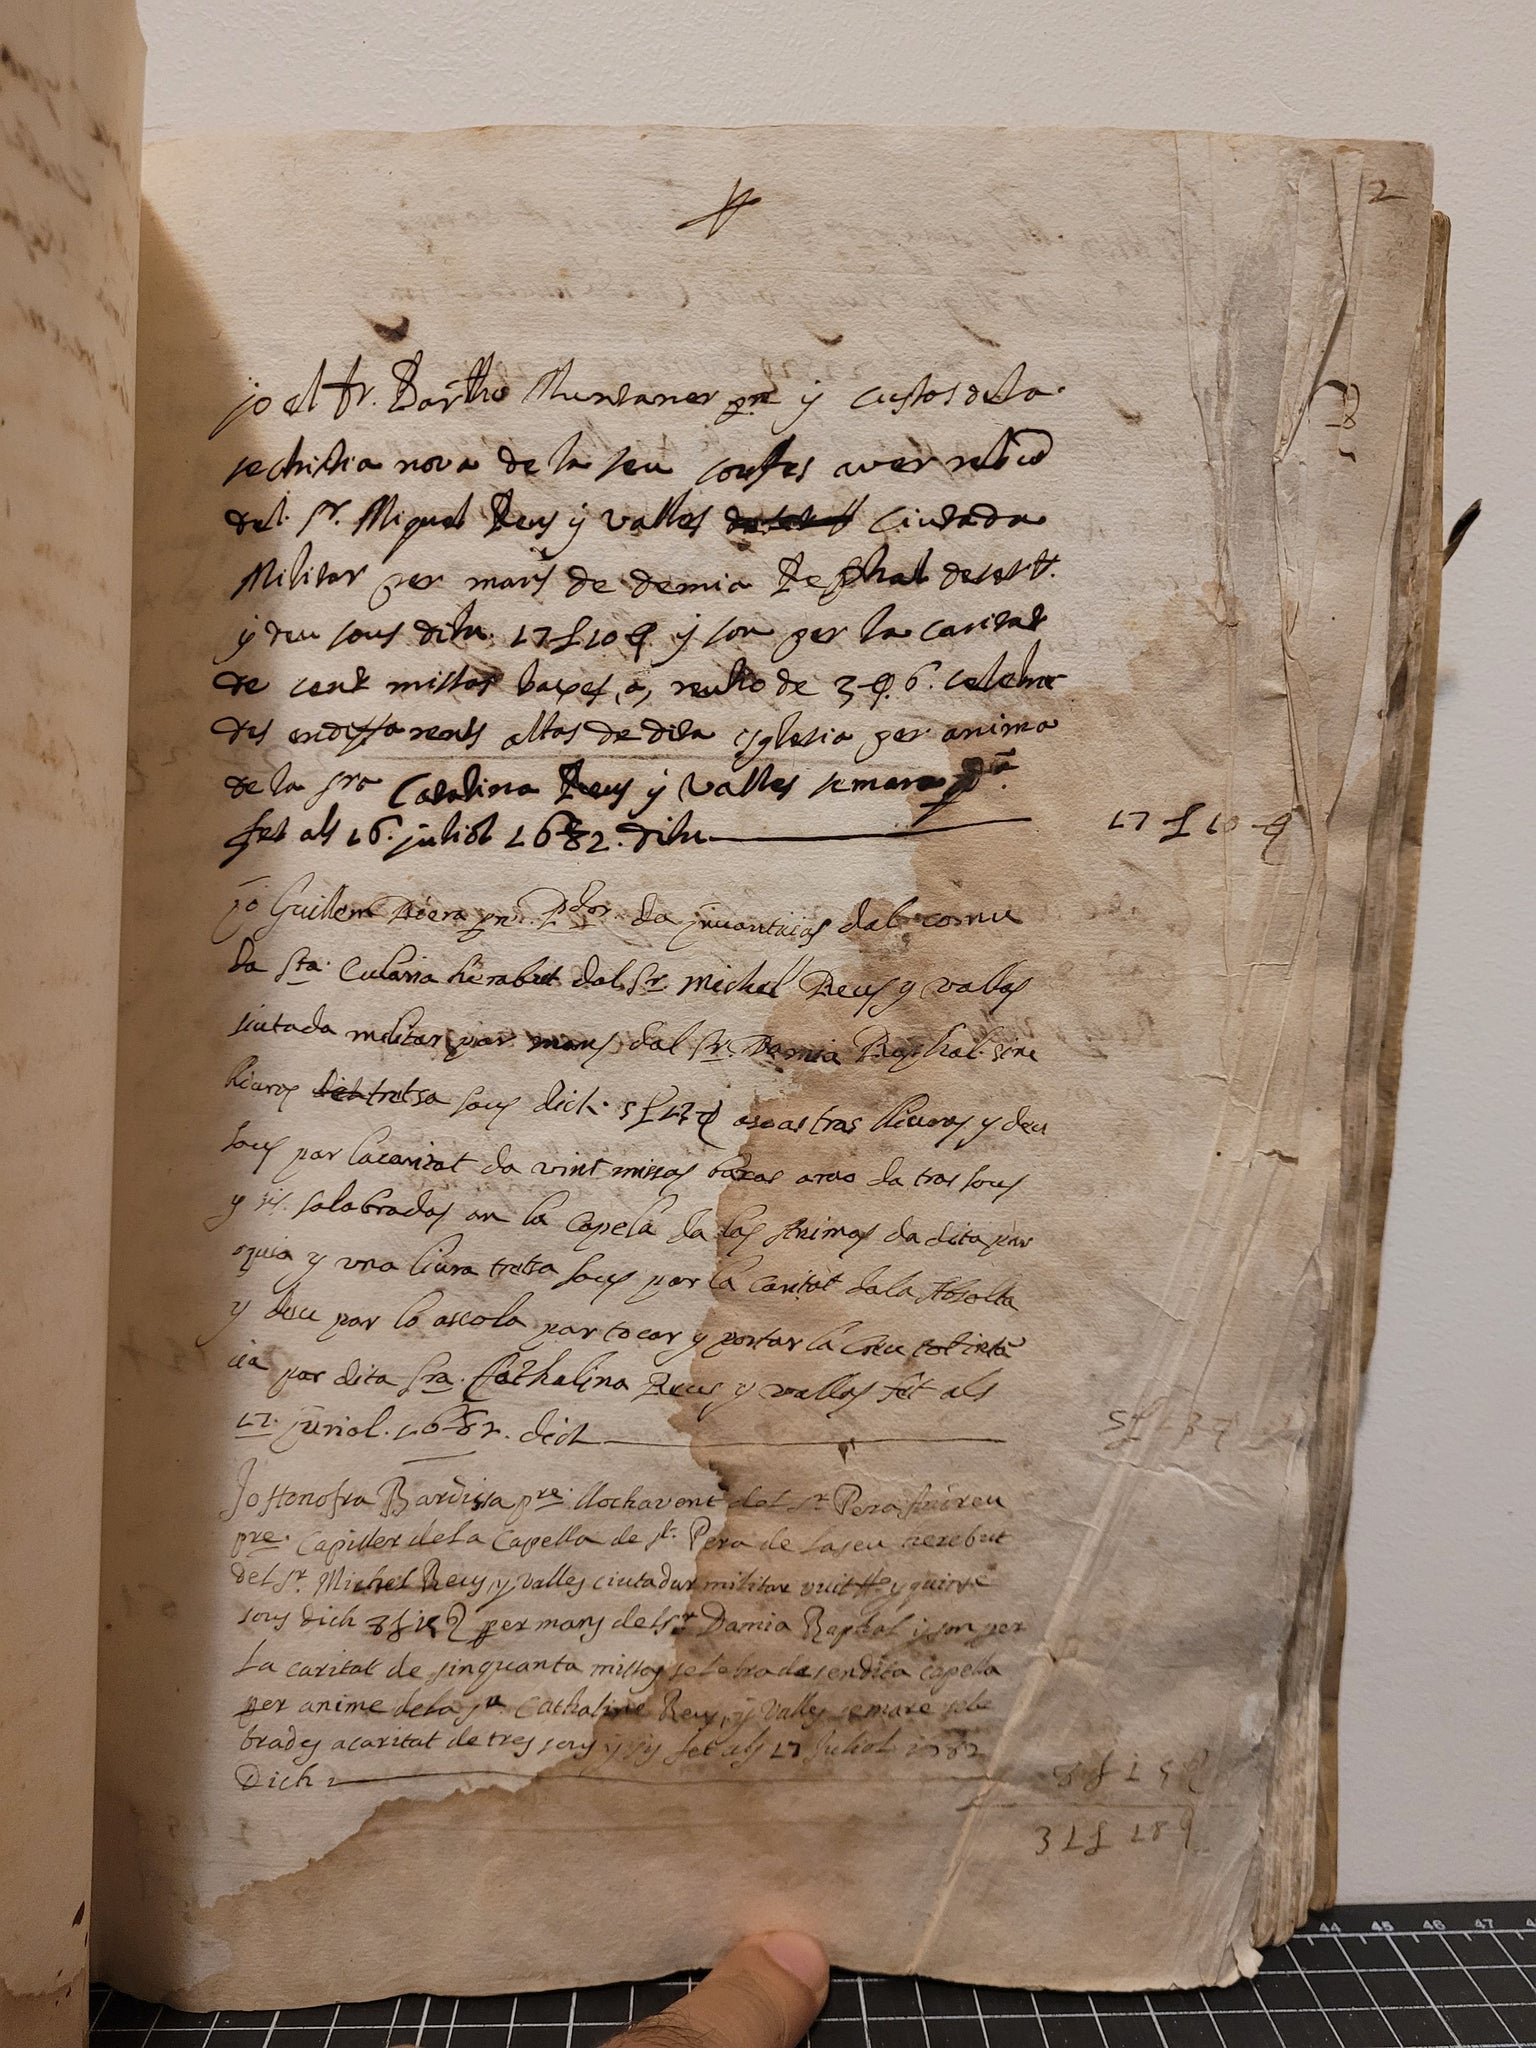 2
jo el fr. Barthõ Muntaner pre y custos de la
sechistia nova de la seu confes aver rebud
del Sr. Miquel Reus y Valles ciutada
Militar per mans de demia Rephal deset tt.
y deu sous dihu 17 £ 10 q y son per la caritat
de cent missas baxes, a, reuho de 3 q. 6. celebra
des endifferents altas de dita isglesia per anima
de la sra Catalina Reus y Valles se mare
fet als 16. juliol 1682. dihu
17 £ 10 q
jo Guillem Riera pre. Pdor. da juvantuias dal comu
da Sta. Eularia he rabut dal Sr. Michel Reus y vallas
siutada militar par mans dal Sr. Damia Raphal sinc
lliuras tretsa sous dich. 5 £ 13 q so as tras lliuras y deu
sous par la caritat da vint missas baxas a rao da tras sous
y sis. salabradas an la Capela da las Animas da dita par
oquia y una liura tretsa sous par la caritat dala Absolta
y deu par lo ascola par tocar y portar la Creu tot
par dita Sra. Cathalina Reus y vallas fet als
17. juriol. 1682. dich
5 £ 13 q
Jo Honofra Bardissa pre. llochtavent del Sr Pera
pre. Capiller de la Capella de St. Pera de la seu he rebut
del Sr. Michel Reus, y Valles ciutada militar vuit tt y quinse
sous dich 8 £ 15 q per mans del Sr Damia Raphal y son per
La caritat de sinquanta missas selebrades en dita capella
per anime de la Sra. Cathaline Reus, y Valles se mare sele
brades a caritat de tres sous y sis fet als 17 Juliol 1682
Dich
8 £ 15 q
31 £ 18 q